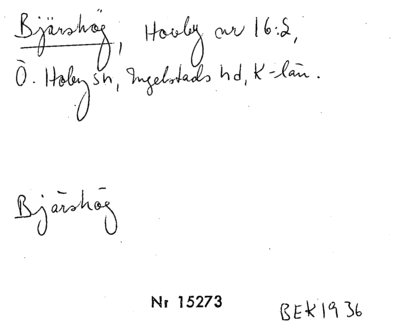 Bjärshög, Hoby nr 16:2,
Ö. Hoby sn, Ingelstads hd, K-län.
Bjärshög
Nr 15273
BEK 1936